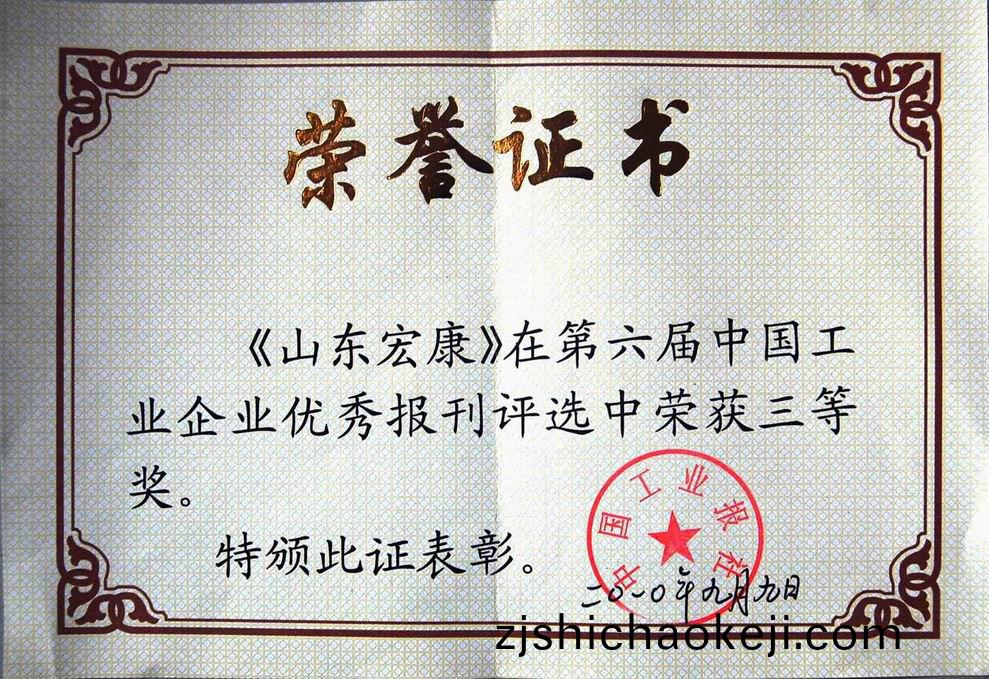 荣誉证书
《山东宏康》在第六届中国工
业企业优秀报刊评选中荣获三等
奖。
特颁此证表彰。
中国工业报社
二〇一〇年九月九日
zjshichaokeji.com